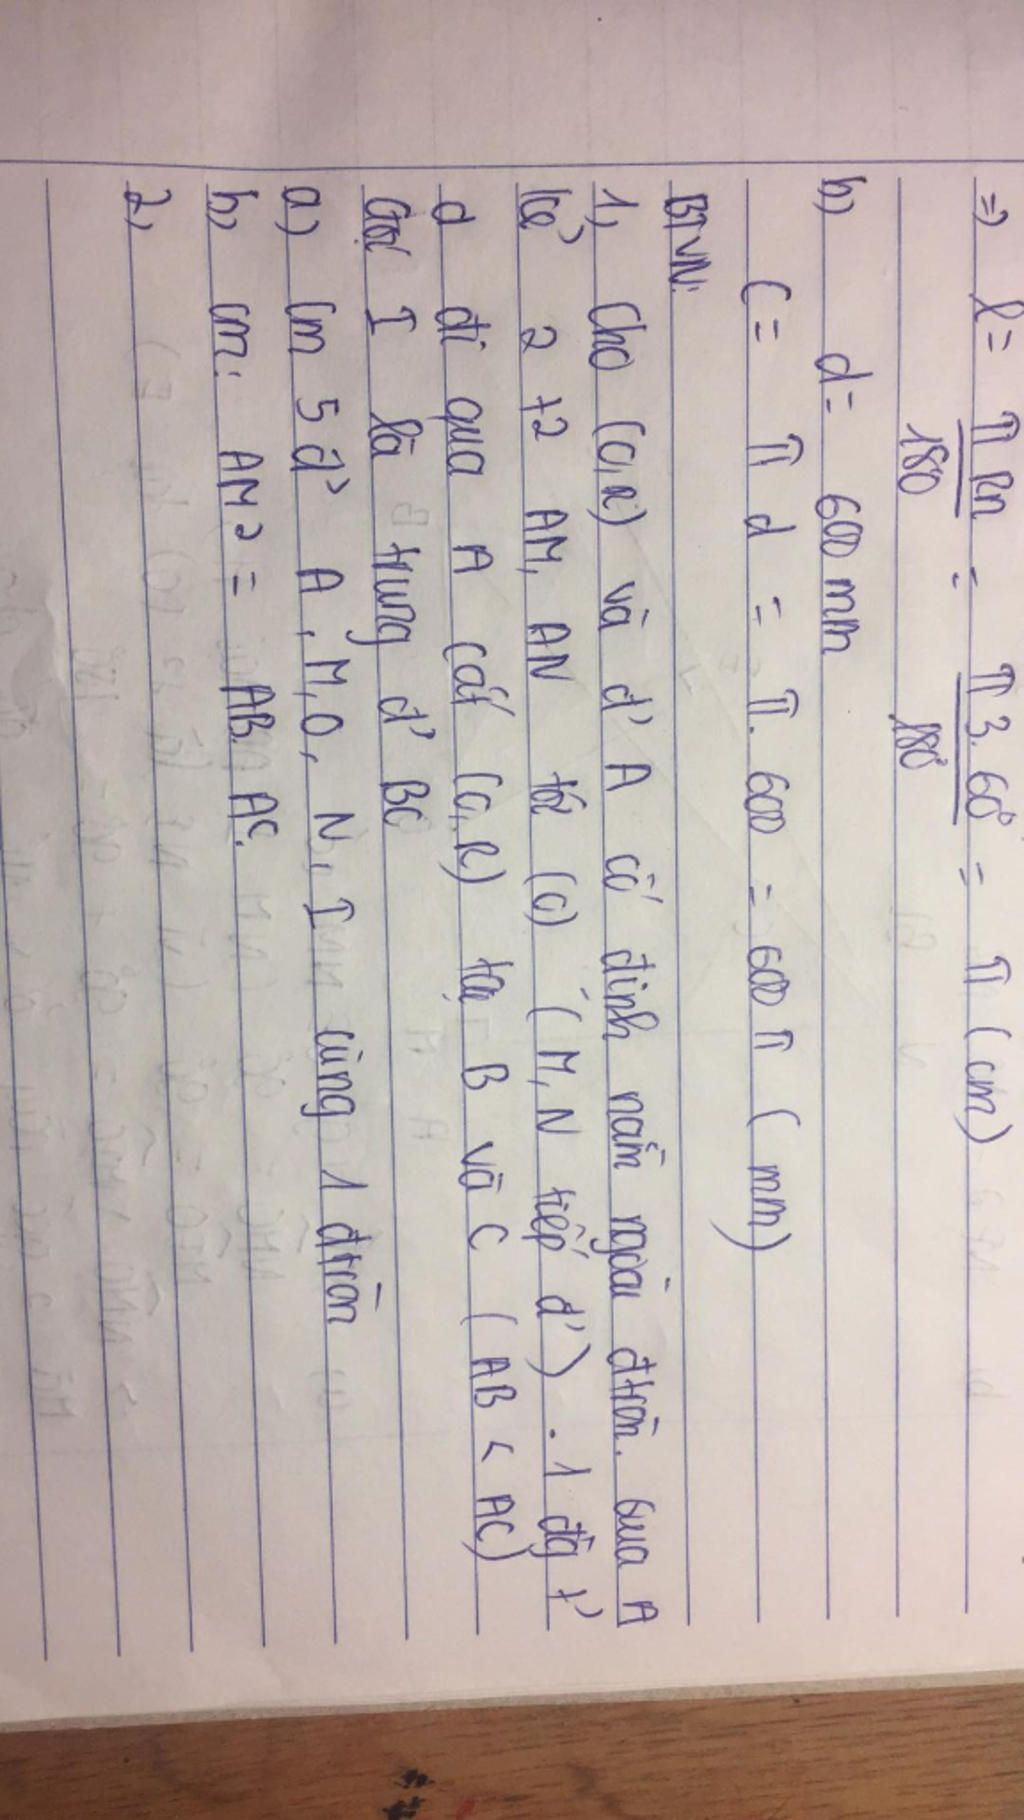 => l = πRn / 180 = π3.60° / 180° = π (cm)
b, d = 600 mm
C = πd = π.600 = 600π (mm)
BTVN:
1, Cho (O,R) và đ' A cố định nằm ngoài đtròn. Qua A
kẻ 2 t2 AM, AN tới (O) (M,N tiếp đ'). 1 đg t'
d đi qua A cắt (O,R) tại B và C (AB < AC)
Gọi I là trung đ' BC
a) Cm 5 đ' A, M, O, N, I cùng 1 đtròn
b, cm: AM² = AB.AC.
2,